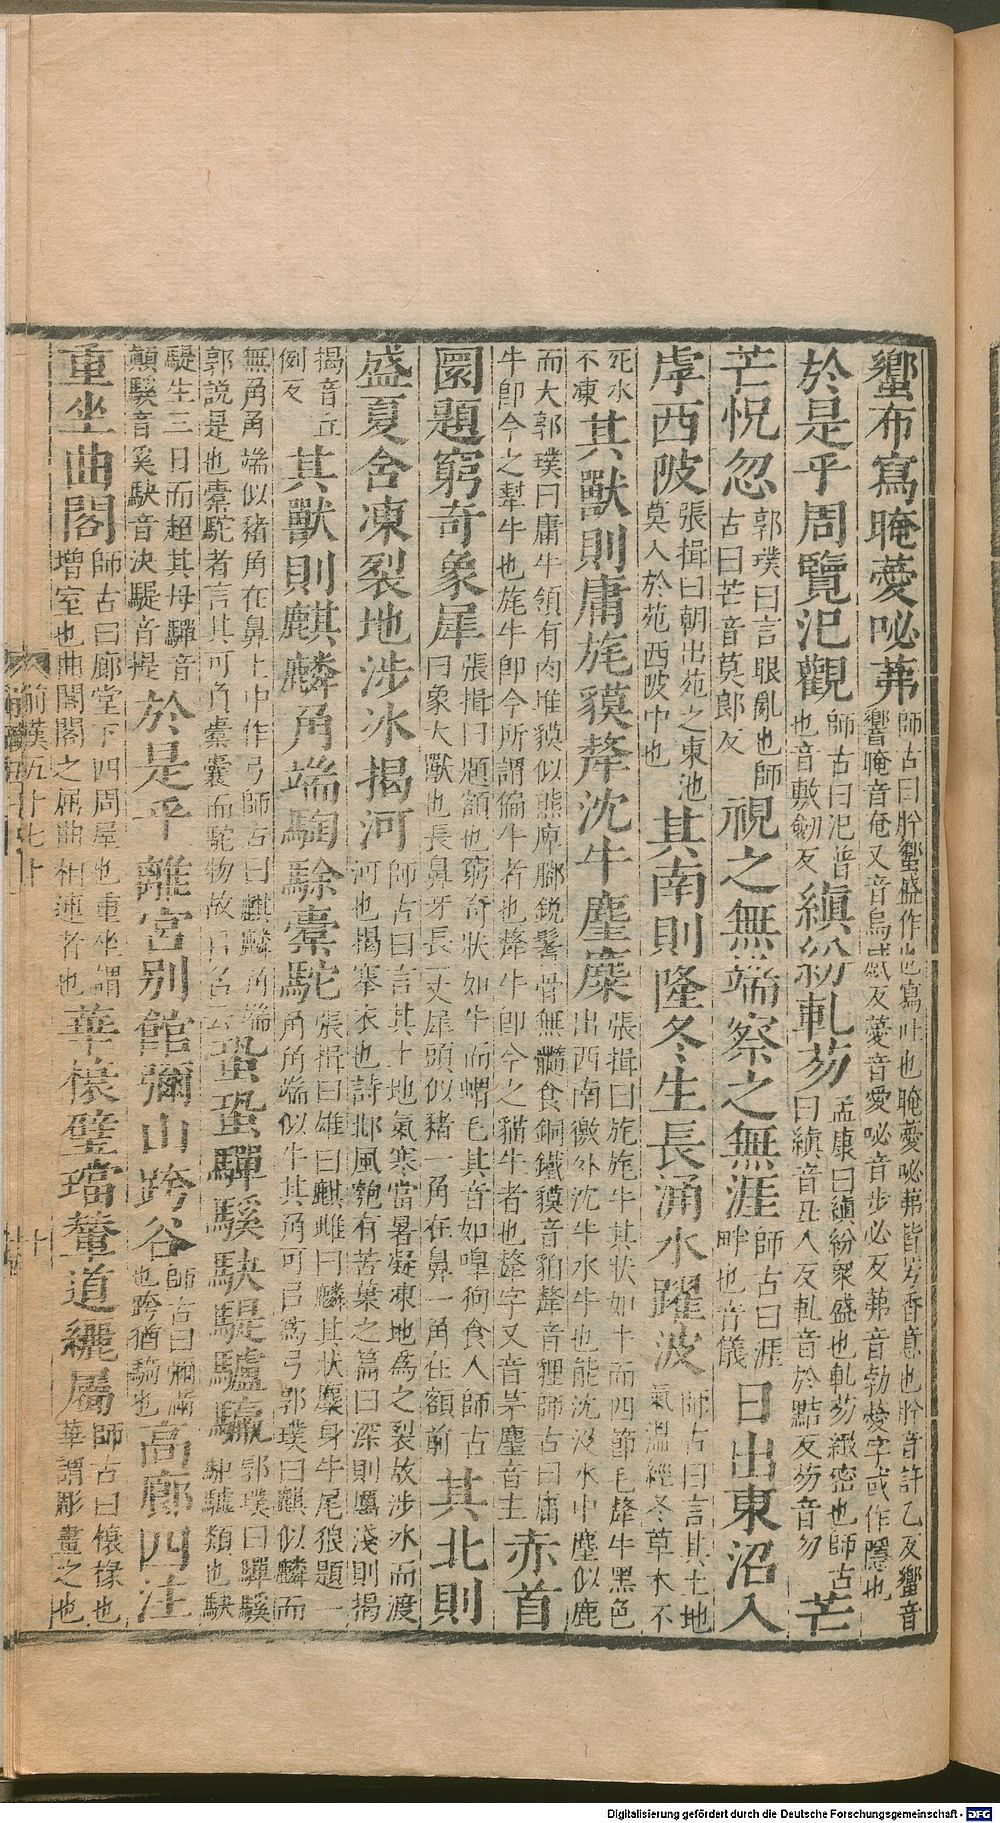 蠁布寫晻薆咇茀師古曰肸蠁盛作也寫吐也晻薆咇茀皆芳香意也肸音許乙反蠁音響晻音奄又音烏感反薆音愛咇音步必反茀音勃薆字或作隱也
於是乎周覽氾觀師古曰氾普也音敷劒反縝紛軋芴孟康曰縝紛衆盛也軋芴緻密也師古曰縝音丑人反軋音於點反芴音勿芒
芒怳忽郭璞曰言眼亂也師古曰芒音莫郎反視之無端察之無涯師古曰涯畔也音儀日出東沼入
虖西陂張揖曰朝出苑之東池莫入於苑西陂中也其南則隆冬生長涌水躍波師古曰言其土地氣溫經冬草木不
死水不凍其獸則庸旄貘犛沈牛麈麋張揖曰旄牛其狀如牛而四節毛犛牛黑色出西南徼外沈牛水牛也能沈没水中麈似鹿
而大郭璞曰庸牛領有肉堆貘似熊庳腳鋭鬐骨無髓食銅鐵貘音貊犛音貍師古曰庸牛即今之犎牛也旄牛即今所謂偏牛者也犛牛即今之貓牛者也犛字又音茅麈音主赤首
圜題窮奇象犀張揖曰題額也窮奇狀如牛而蝟毛其音如嘷狗食人師古曰象大獸也長鼻牙長一丈犀頭似豬一角在鼻一角在額前其北則
盛夏含凍裂地涉冰揭河師古曰言其土地氣寒當暑凝凍地爲之裂故涉冰而渡河也揭褰衣也詩邶風匏有苦葉之篇曰深則厲淺則揭
揭音丘例反其獸則麒麟角端騊駼橐駝張揖曰雄曰麒雌曰麟其狀麇身牛尾狼題一角角端似牛其角可㠯爲弓郭璞曰麒似麟而
無角角端似豬角在鼻上中作弓師古曰麒麟角端郭說是也橐駝者言其可負橐囊而駝物故㠯名云蛩蛩驒騱駃騠驢驘郭璞曰驒騱駏驉類也駃
騠生三日而超其母驒音顛騱音奚駃音決騠音提於是乎離宮别館彌山跨谷師古曰彌滿也跨猶騎也高廊四注
重坐曲閣師古曰廊堂下四周屋也重坐謂增室也曲閣閣之屈曲相連者也華榱璧璫輦道纚屬師古曰榱椽也華謂彫畫之也
前漢五十七上
十
Digitalisierung gefördert durch die Deutsche Forschungsgemeinschaft - DFG